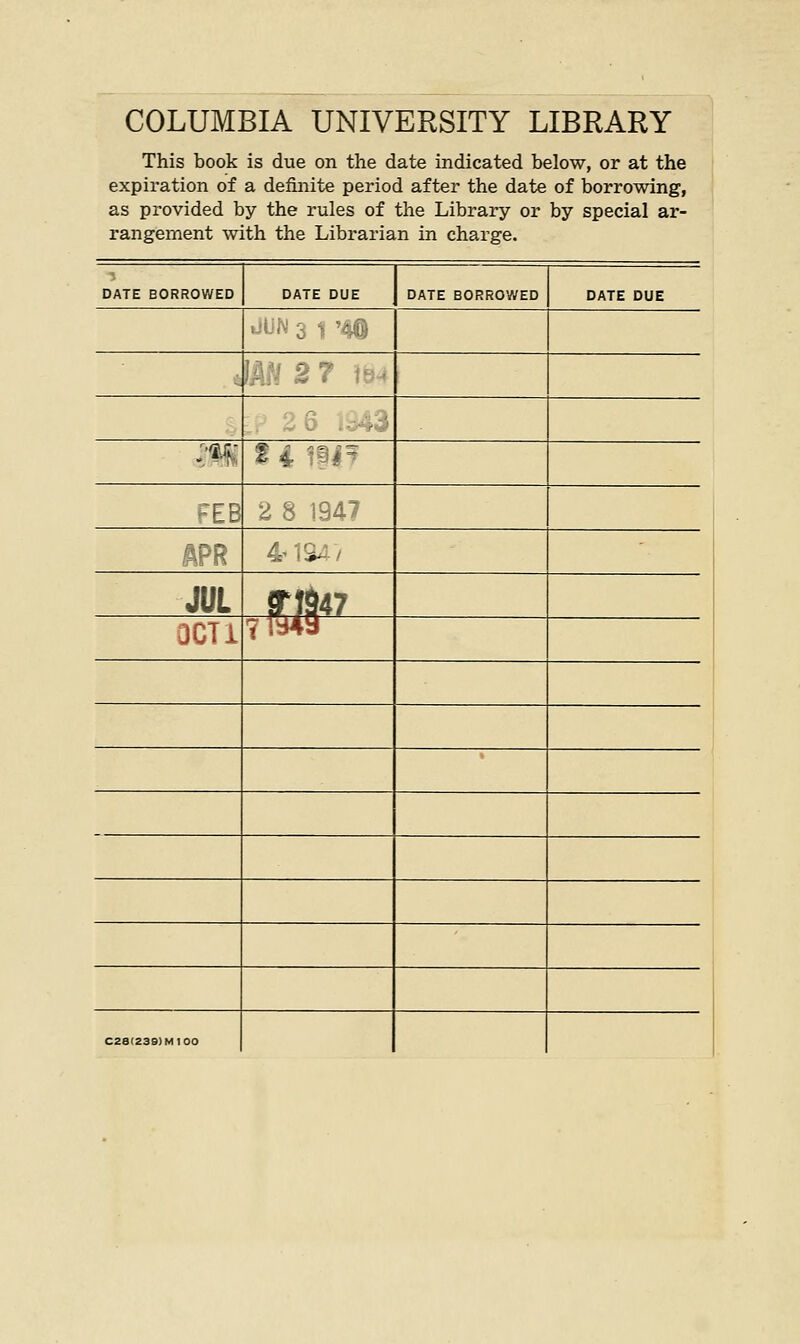 COLUMBIA UNIVERSITY LIBRARY
This book is due on the date indicated below, or at the
expiration of a definite period after the date of borrowing,
as provided by the rules of the Library or by special ar-
rangement with the Librarian in charge.
DATE BORROWED DATE DUE DATE BORROWED DATE DUE
JUN 3 1 '40
JAN 27
26 1943
JAN 24 1947
FEB 28 1947
APR 4 1947
JUL 1947
OCT 17 1949
C28(239)M100